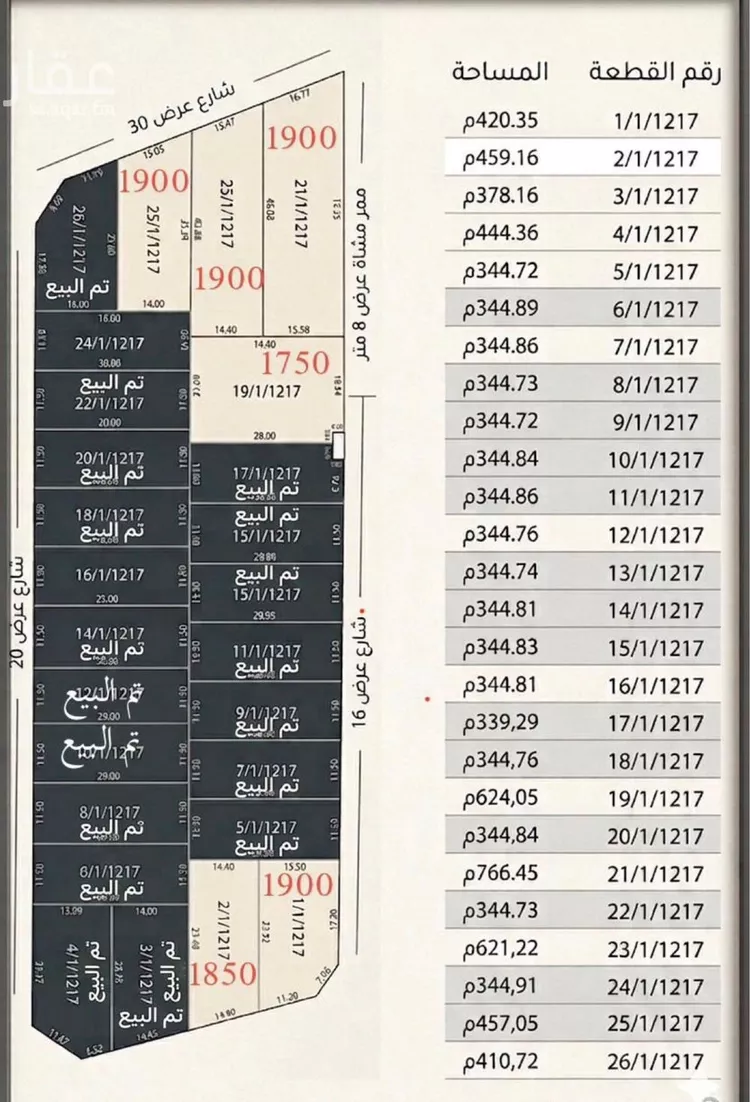 عقار
sa.aqar.fm
رقم القطعة المساحة
1/1/1217 420.35م
2/1/1217 459.16م
3/1/1217 378.16م
4/1/1217 444.36م
5/1/1217 344.72م
6/1/1217 344.89م
7/1/1217 344.86م
8/1/1217 344.73م
9/1/1217 344.72م
10/1/1217 344.84م
11/1/1217 344.86م
12/1/1217 344.76م
13/1/1217 344.74م
14/1/1217 344.81م
15/1/1217 344.83م
16/1/1217 344.81م
17/1/1217 339,29م
18/1/1217 344,76م
19/1/1217 624,05م
20/1/1217 344,84م
21/1/1217 766.45م
22/1/1217 344.73م
23/1/1217 621,22م
24/1/1217 344,91م
25/1/1217 457,05م
26/1/1217 410,72م
شارع عرض 30
ممر مشاة عرض 8 متر
شارع عرض 16
شارع عرض 20
16.77
1900
21/1/1217
46.08
15.58
15.47
25/1/1217
1900
14.40
15.05
1900
25/1/1217
14.00
26/1/1217
تم البيع
16.00
16.00
24/1/1217
30.06
تم البيع
22/1/1217
20.00
20/1/1217
تم البيع
18/1/1217
تم البيع
16/1/1217
23.00
14/1/1217
تم البيع
12/1/1217
تم البيع
29.00
تم البيع
29.00
8/1/1217
تم البيع
6/1/1217
تم البيع
13.99
4/1/1217
تم البيع
11.47
14.00
3/1/1217
تم البيع
تم البيع
14.45
14.40
1750
19/1/1217
28.00
17/1/1217
تم البيع
تم البيع
15/1/1217
28.80
تم البيع
15/1/1217
29.95
11/1/1217
تم البيع
9/1/1217
تم البيع
7/1/1217
تم البيع
5/1/1217
تم البيع
14.40
2/1/1217
1850
15.50
1900
1/1/1217
23.92
7.06
11.20